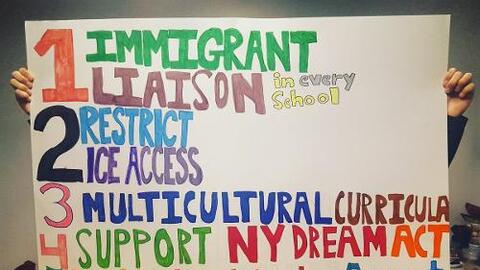 1 IMMIGRANT
LIAISON in every
School
2 RESTRICT
ICE ACCESS
3 MULTICULTURAL CURRICULA
4 SUPPORT NY DREAM ACT